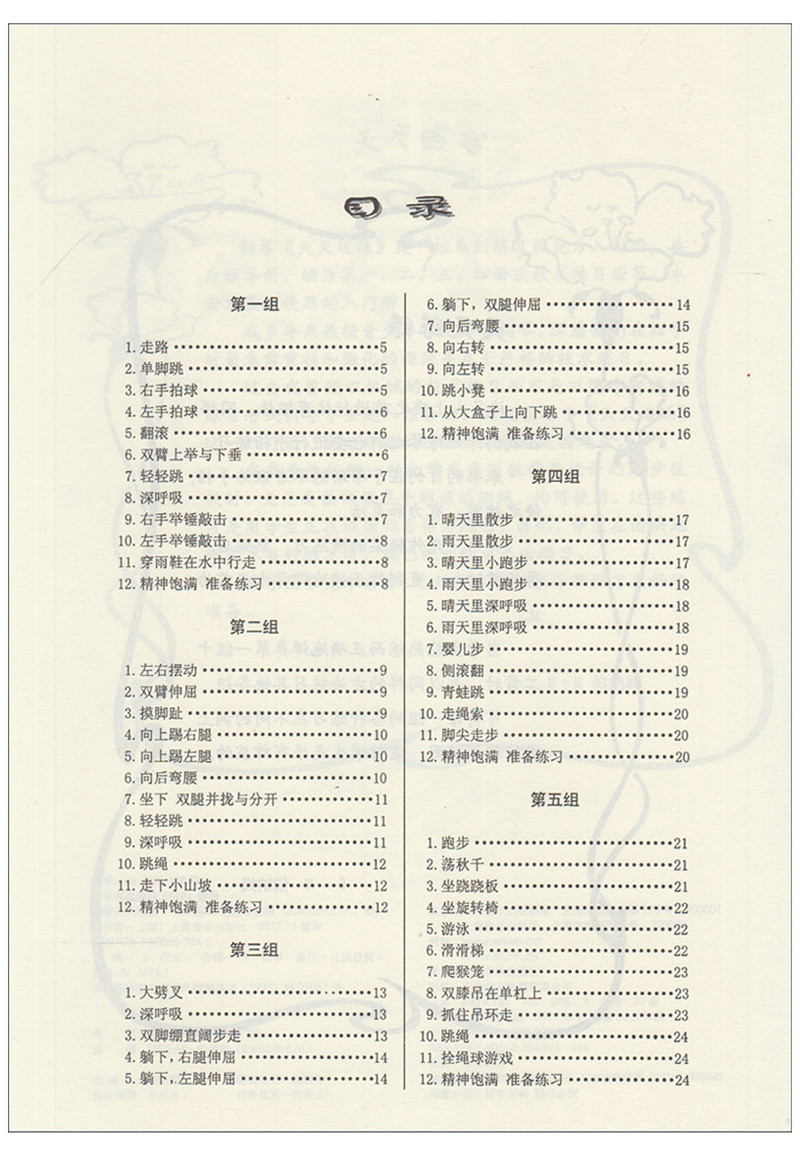 目录
第一组
1. 走路 5
2. 单脚跳 5
3. 右手拍球 5
4. 左手拍球 6
5. 翻滚 6
6. 双臂上举与下垂 6
7. 轻轻跳 7
8. 深呼吸 7
9. 右手举锤敲击 7
10. 左手举锤敲击 8
11. 穿雨鞋在水中行走 8
12. 精神饱满 准备练习 8
第二组
1. 左右摆动 9
2. 双臂伸屈 9
3. 摸脚趾 9
4. 向上踢右腿 10
5. 向上踢左腿 10
6. 向后弯腰 10
7. 坐下 双腿并拢与分开 11
8. 轻轻跳 11
9. 深呼吸 11
10. 跳绳 12
11. 走下小山坡 12
12. 精神饱满 准备练习 12
第三组
1. 大劈叉 13
2. 深呼吸 13
3. 双脚绷直阔步走 13
4. 躺下,右腿伸屈 14
5. 躺下,左腿伸屈 14
6. 躺下,双腿伸屈 14
7. 向后弯腰 15
8. 向右转 15
9. 向左转 15
10. 跳小凳 16
11. 从大盒子上向下跳 16
12. 精神饱满 准备练习 16
第四组
1. 晴天里散步 17
2. 雨天里散步 17
3. 晴天里小跑步 17
4. 雨天里小跑步 18
5. 晴天里深呼吸 18
6. 雨天里深呼吸 18
7. 婴儿步 19
8. 侧滚翻 19
9. 青蛙跳 19
10. 走绳索 20
11. 脚尖走步 20
12. 精神饱满 准备练习 20
第五组
1. 跑步 21
2. 荡秋千 21
3. 坐跷跷板 21
4. 坐旋转椅 22
5. 游泳 22
6. 滑滑梯 22
7. 爬猴笼 23
8. 双膝吊在单杠上 23
9. 抓住吊环走 23
10. 跳绳 24
11. 拴绳球游戏 24
12. 精神饱满 准备练习 24